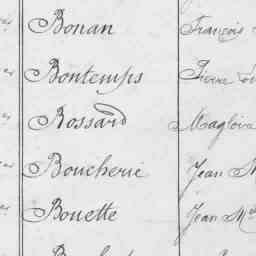 Bonan François
Bontemps Pierre
Bossard Magloire
Boucherie Jean M
Bouette Jean M